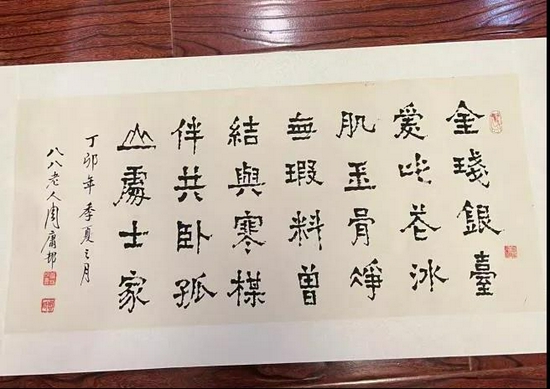 金琖銀臺
愛此花冰
肌玉骨净
無瑕料曾
結與寒楳
伴共卧孤
山處士家
丁卯年季夏之月
八八老人周庸邨